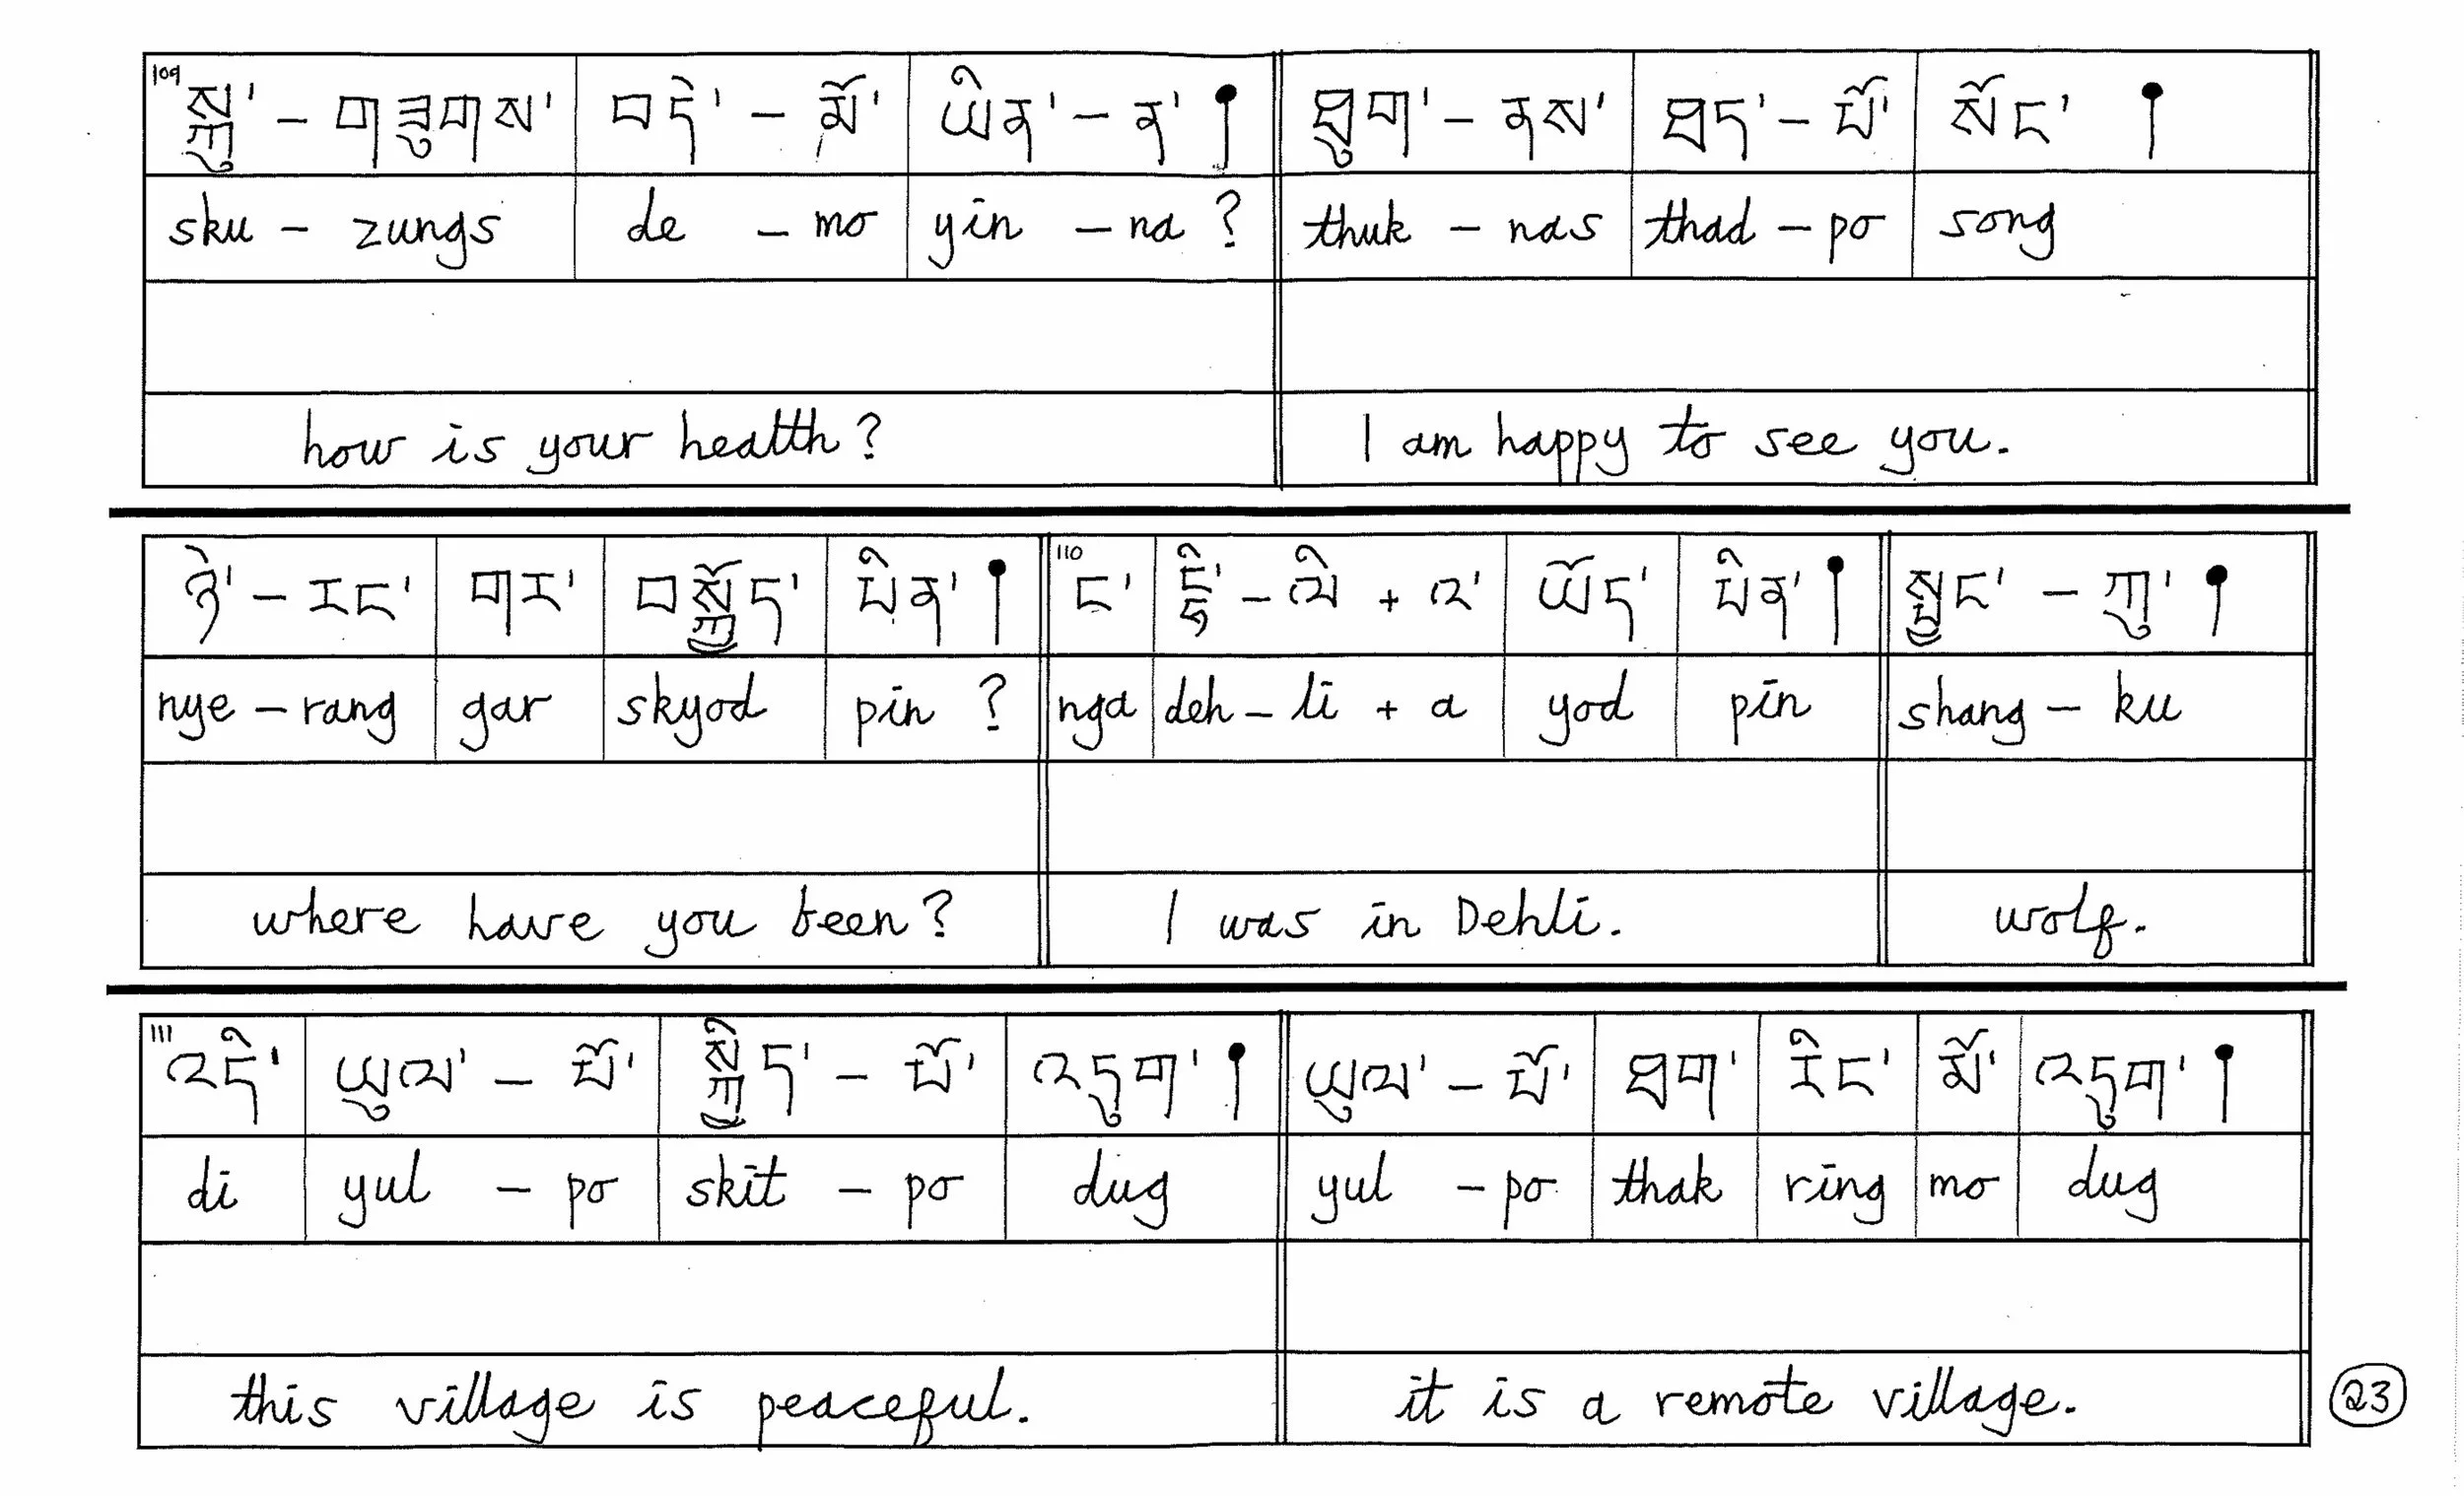 109 སྐུ་ – གཟུགས་ བདེ་ – མོ་ ཡིན་ – ན་ ། ཐུག་ – ནས་ ཐད་ – པོ་ སོང་ །
sku – zungs de – mo yin – na ? thuk – nas thad – po song
how is your health? I am happy to see you.
ཉེ་ – རང་ གར་ བསྐྱོད་ པིན་ ། 110 ང་ – ལི + ལ་ ཡོད་ པིན་ ། སྤྱང་ – ཀུ་ །
nye – rang gar skyod pin ? nga deh – li + a yod pin shang – ku
where have you been? I was in Dehli. wolf.
111 འདི་ ཡུལ་ – པོ་ སྐྱིད་ – པོ་ འདུག་ ། ཡུལ་ – པོ་ ཐག་ རིང་ མོ་ འདུག་ །
di yul – po skit – po dug yul – po thak ring mo dug
this village is peaceful. it is a remote village.
23